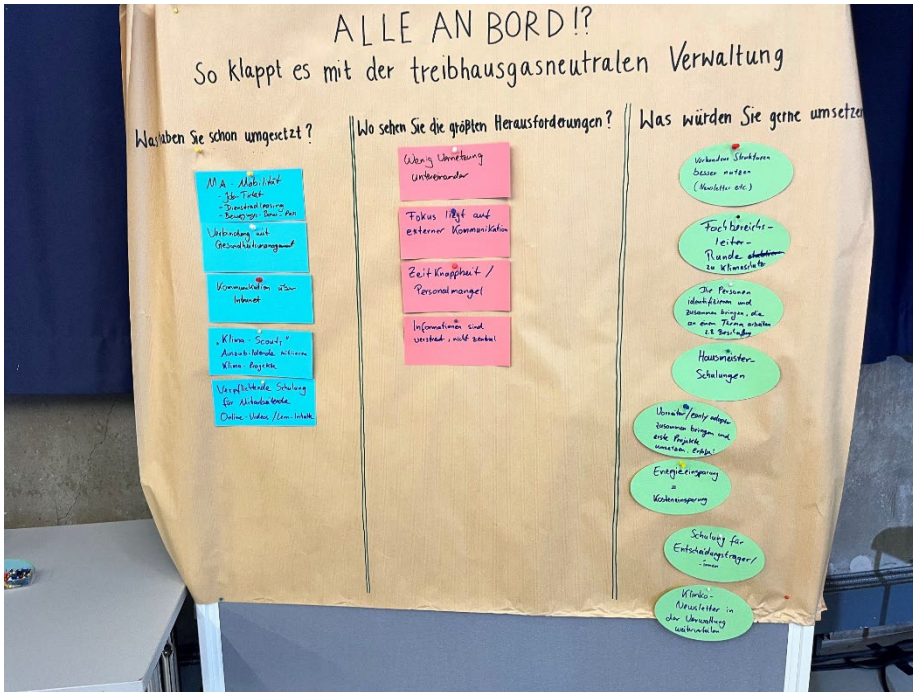 ALLE AN BORD!?
So klappt es mit der treibhausgasneutralen Verwaltung
Was haben Sie schon umgesetzt?
M.A.-Mobilität
- Job-Ticket
- Dienstradleasing
- Bewegungs-Bonus-Pass
Verbindung mit
Gesundheitsmanagement
Kommunikation über
Intranet
„Klima-Scouts"
Auszubildende initiieren
Klima-Projekte
Verpflichtende Schulung
für Mitarbeitende
Online-Videos/Lern-Inhalte
Wo sehen Sie die größten Herausforderungen?
Wenig Vernetzung
untereinander
Fokus liegt auf
externer Kommunikation
Zeitknappheit/
Personalmangel
Informationen sind
verstreut, nicht zentral
Was würden Sie gerne umsetzen
Vorhandene Strukturen
besser nutzen
(Newsletter etc.)
Fachbereichs-
leiter-
Runde
zu Klimaschutz
Personen
identifizieren und
zusammen bringen, die
an einem Thema arbeiten
z.B. Beschaffung
Hausmeister-
Schulungen
Vorreiter/early adopter
zusammen bringen und
erste Projekte
umsetzen.
Energieeinsparung
=
Kosteneinsparung
Schulung für
Entscheidungsträger/
-innen
Klinko-
Newsletter in
der Verwaltung
weiterverteilen